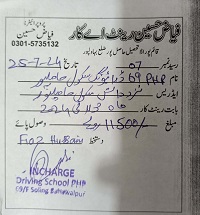 فیاض حسین رینٹ اے کار
پروپرائیٹر
فیاض حسین
0301-5735132
قائم پور تحصیل حاصل پور ضلع بہاولپور
رسید نمبر 07 تاریخ 25-7-24
نام PHP 69
ایڈریس
بابت رینٹ کار ماہ جولائی 2024
مبلغ 11500/ روپے وصول پائے
دستخط Fiaz Hussain
INCHARGE
Driving School PHP
69/F Suling Bahawalpur